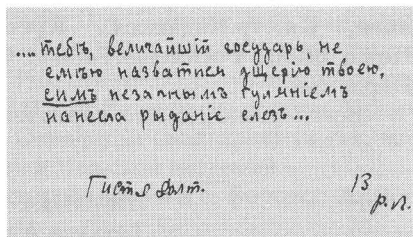 ....тебѣ, величайшій государь, не
смѣю назватися дщерію твоею,
симъ незапнымъ гуляніемъ
нанесла рыданіе слезъ...
13
р. л.